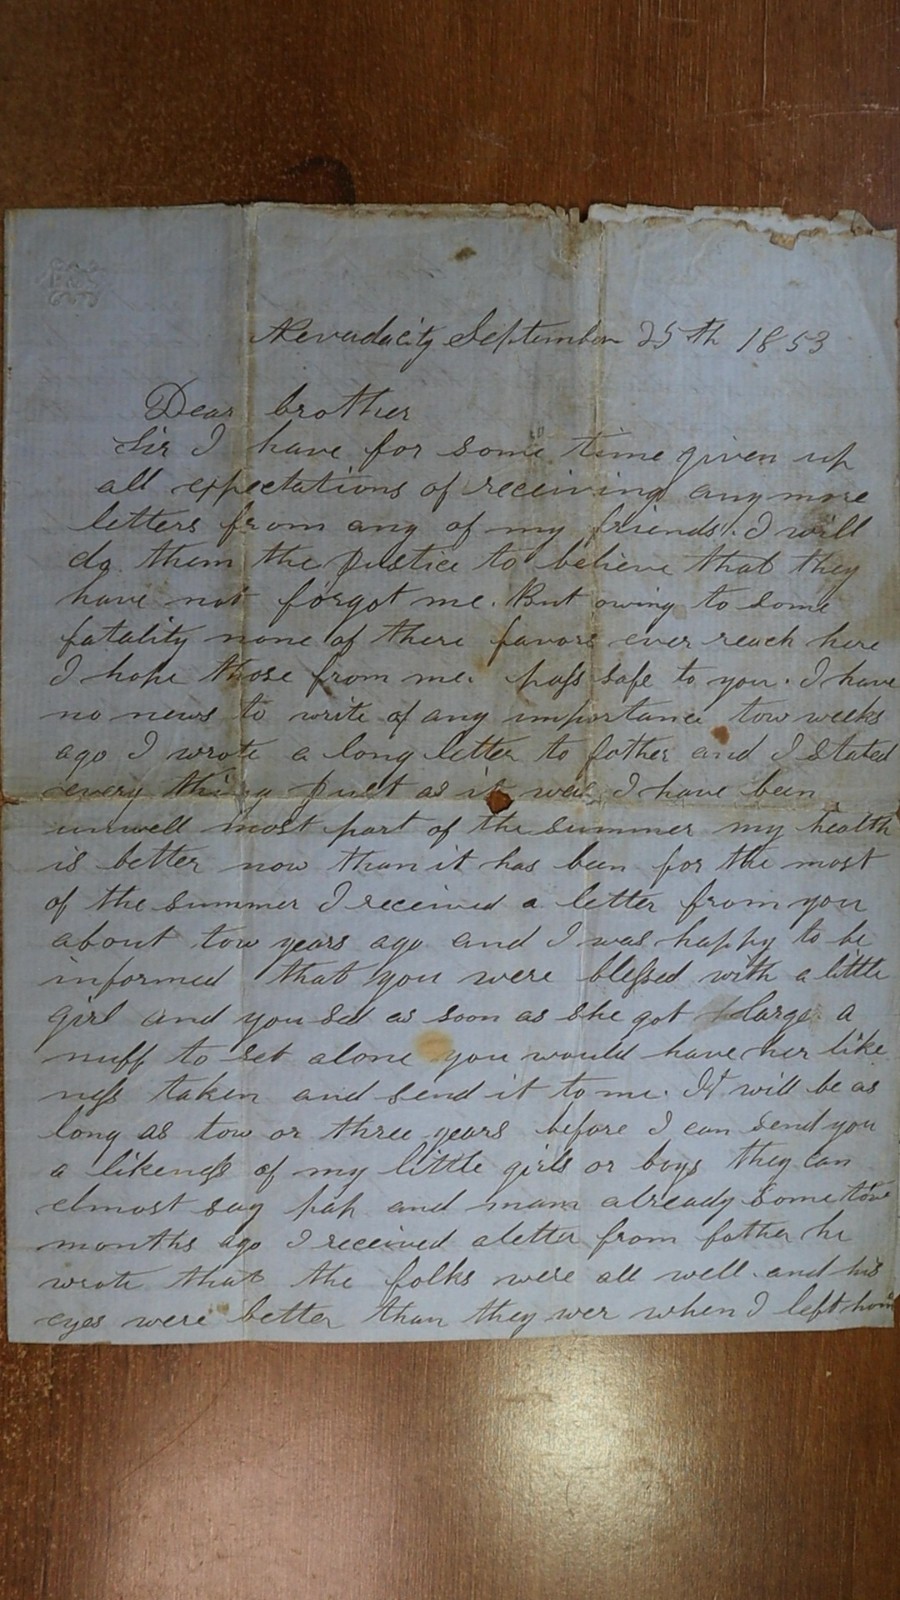 Nevadacity September 25th 1853
Dear brother
Sir I have for some time given up
all expectations of receiving any more
letters from any of my friends. I will
do them the justice to believe that they
have not forgot me. But owing to some
fatality none of there favors ever reach here
I hope those from me. pass safe to you. I have
no news to write of any importance tow weeks
ago I wrote a long letter to father and I stated
every thing just as it was I have been
unwell most part of the summer my health
is better now than it has been for the most
of the summer I received a letter from you
about tow years ago and I was happy to be
informed that you were blessed with a little
girl and you sed as soon as she got large a
nuff to set alone you would have her like
ness taken and send it to me. It will be as
long as tow or three years before I can send you
a likeness of my little girls or boys they can
elmost say pap and mam already some tow
months ago I received a letter from father he
wrote that the folks were all well and his
eyes were better than they wer when I left home